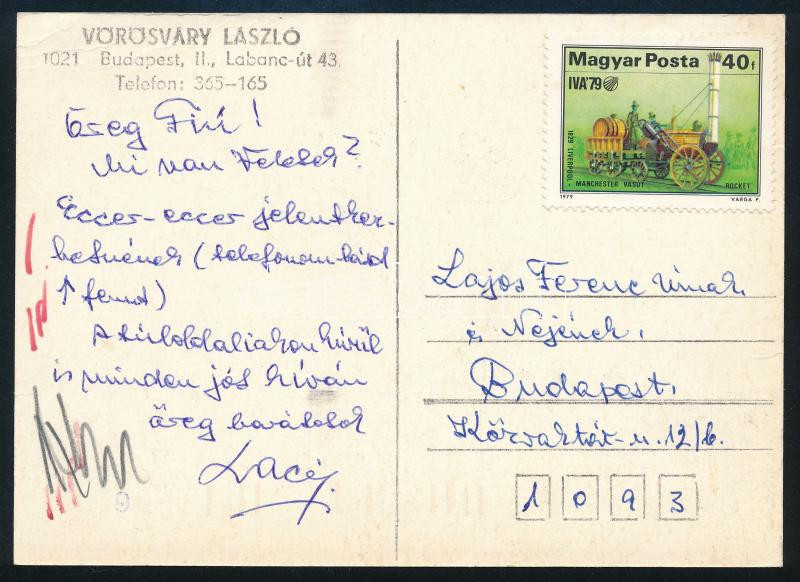 VÖRÖSVÁRY LÁSZLÓ
1021 Budapest, II., Labanc-út 43.
Telefon: 365-165
Öreg Fiú!
Mi van Veletek?
Eccer-eccer jelentkez-
hetnének (telefonom hátul
↑ fennt)
A túloldaliakon kívül
is minden jót kíván
öreg barátotok
Laci
Magyar Posta 40f
IVA'79
1829 LIVERPOOL-MANCHESTER VASÚT ROCKET
1979 VARGA P.
Lajos Ferenc Úrnak
és Nejének.
Budapest.
Köztelek-u. 12/b.
1093